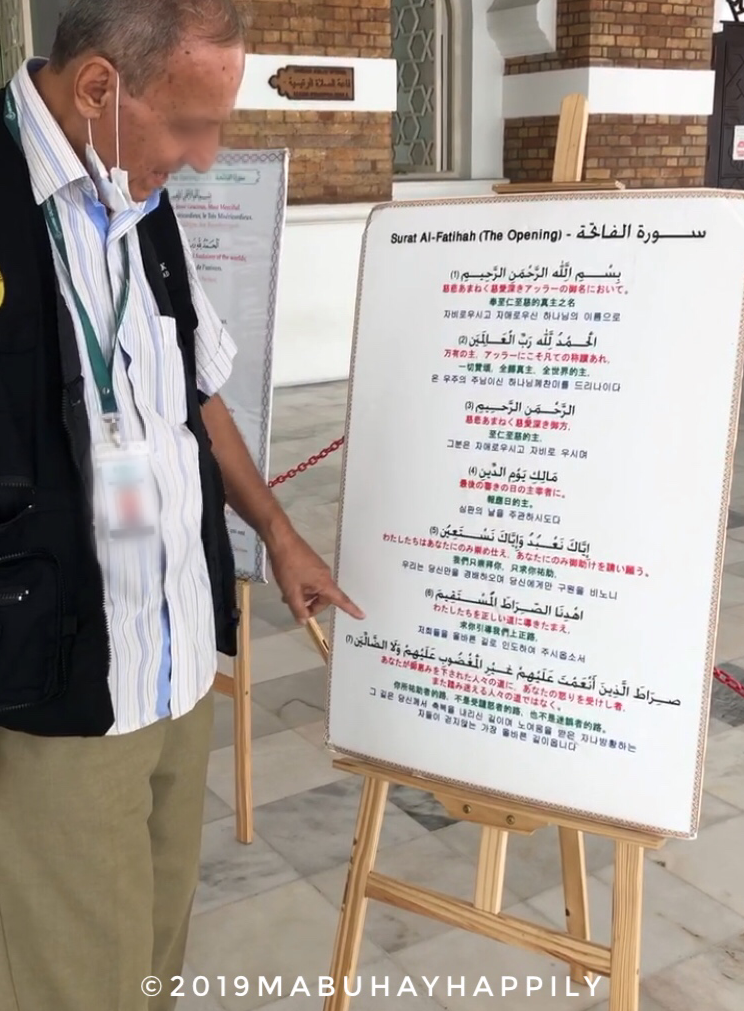 Surat Al-Fatihah (The Opening) - ســورة الفاتحة
بِسْــمِ اللَّهِ الرَّحْمَنِ الرَّحِيــمِ (1)
慈悲あまねく慈愛深きアッラーの御名において。
奉至仁至慈的真主之名
자비로우시고 자애로우신 하나님의 이름으로
الْحَــمْدُ لِلَّهِ رَبِّ الْعَــالَمِينَ (2)
万有の主，アッラーにこそ凡ての称讃あれ，
一切贊頌，全歸真主，全世界的主，
온 우주의 주님이신 하나님께찬미를 드리나이다
الرَّحْــمَنِ الرَّحِــيمِ (3)
慈悲あまねく慈愛深き御方，
至仁至慈的主，
그분은 자애로우시고 자비로 우시며
مَالِكِ يَوْمِ الدِّينِ (4)
最後の審きの日の主宰者に。
報應日的主。
심판의 날을 주관하시도다
إِيَّاكَ نَعْــبُدُ وَإِيَّاكَ نَسْــتَعِيْنُ (5)
わたしたちはあなたにのみ崇め仕え，あなたにのみ御助けを請い願う。
我們只崇拜你，只求你祐助，
우리는 당신만을 경배하오며 당신에게만 구원을 비노니
اهْدِنَا الصِّــرَاطَ الْمُسْــتَقِيمَ (6)
わたしたちを正しい道に導きたまえ，
求你引導我們上正路，
저희들을 올바른 길로 인도하여 주시옵소서
صِــرَاطَ الَّذِينَ أَنْعَمْتَ عَلَيْهِمْ غَــيْرِ الْمَغْضُوبِ عَلَيْهِمْ وَلَا الضَّالِّينَ (7)
あなたが御恵みを下された人々の道に，あなたの怒りを受けし者，
また踏み迷える人々の道ではなく。
你所祐助者的路，不是受譴怒者的路，也不是迷誤者的路。
그 길은 당신께서 축복을 내리신 길이며 노여움을 받은 자나방황하는
자들이 걷지않는 가장 올바른 길이옵니다
قاعة الصلاة الرئيسية
©2019MABUHAYHAPPILY